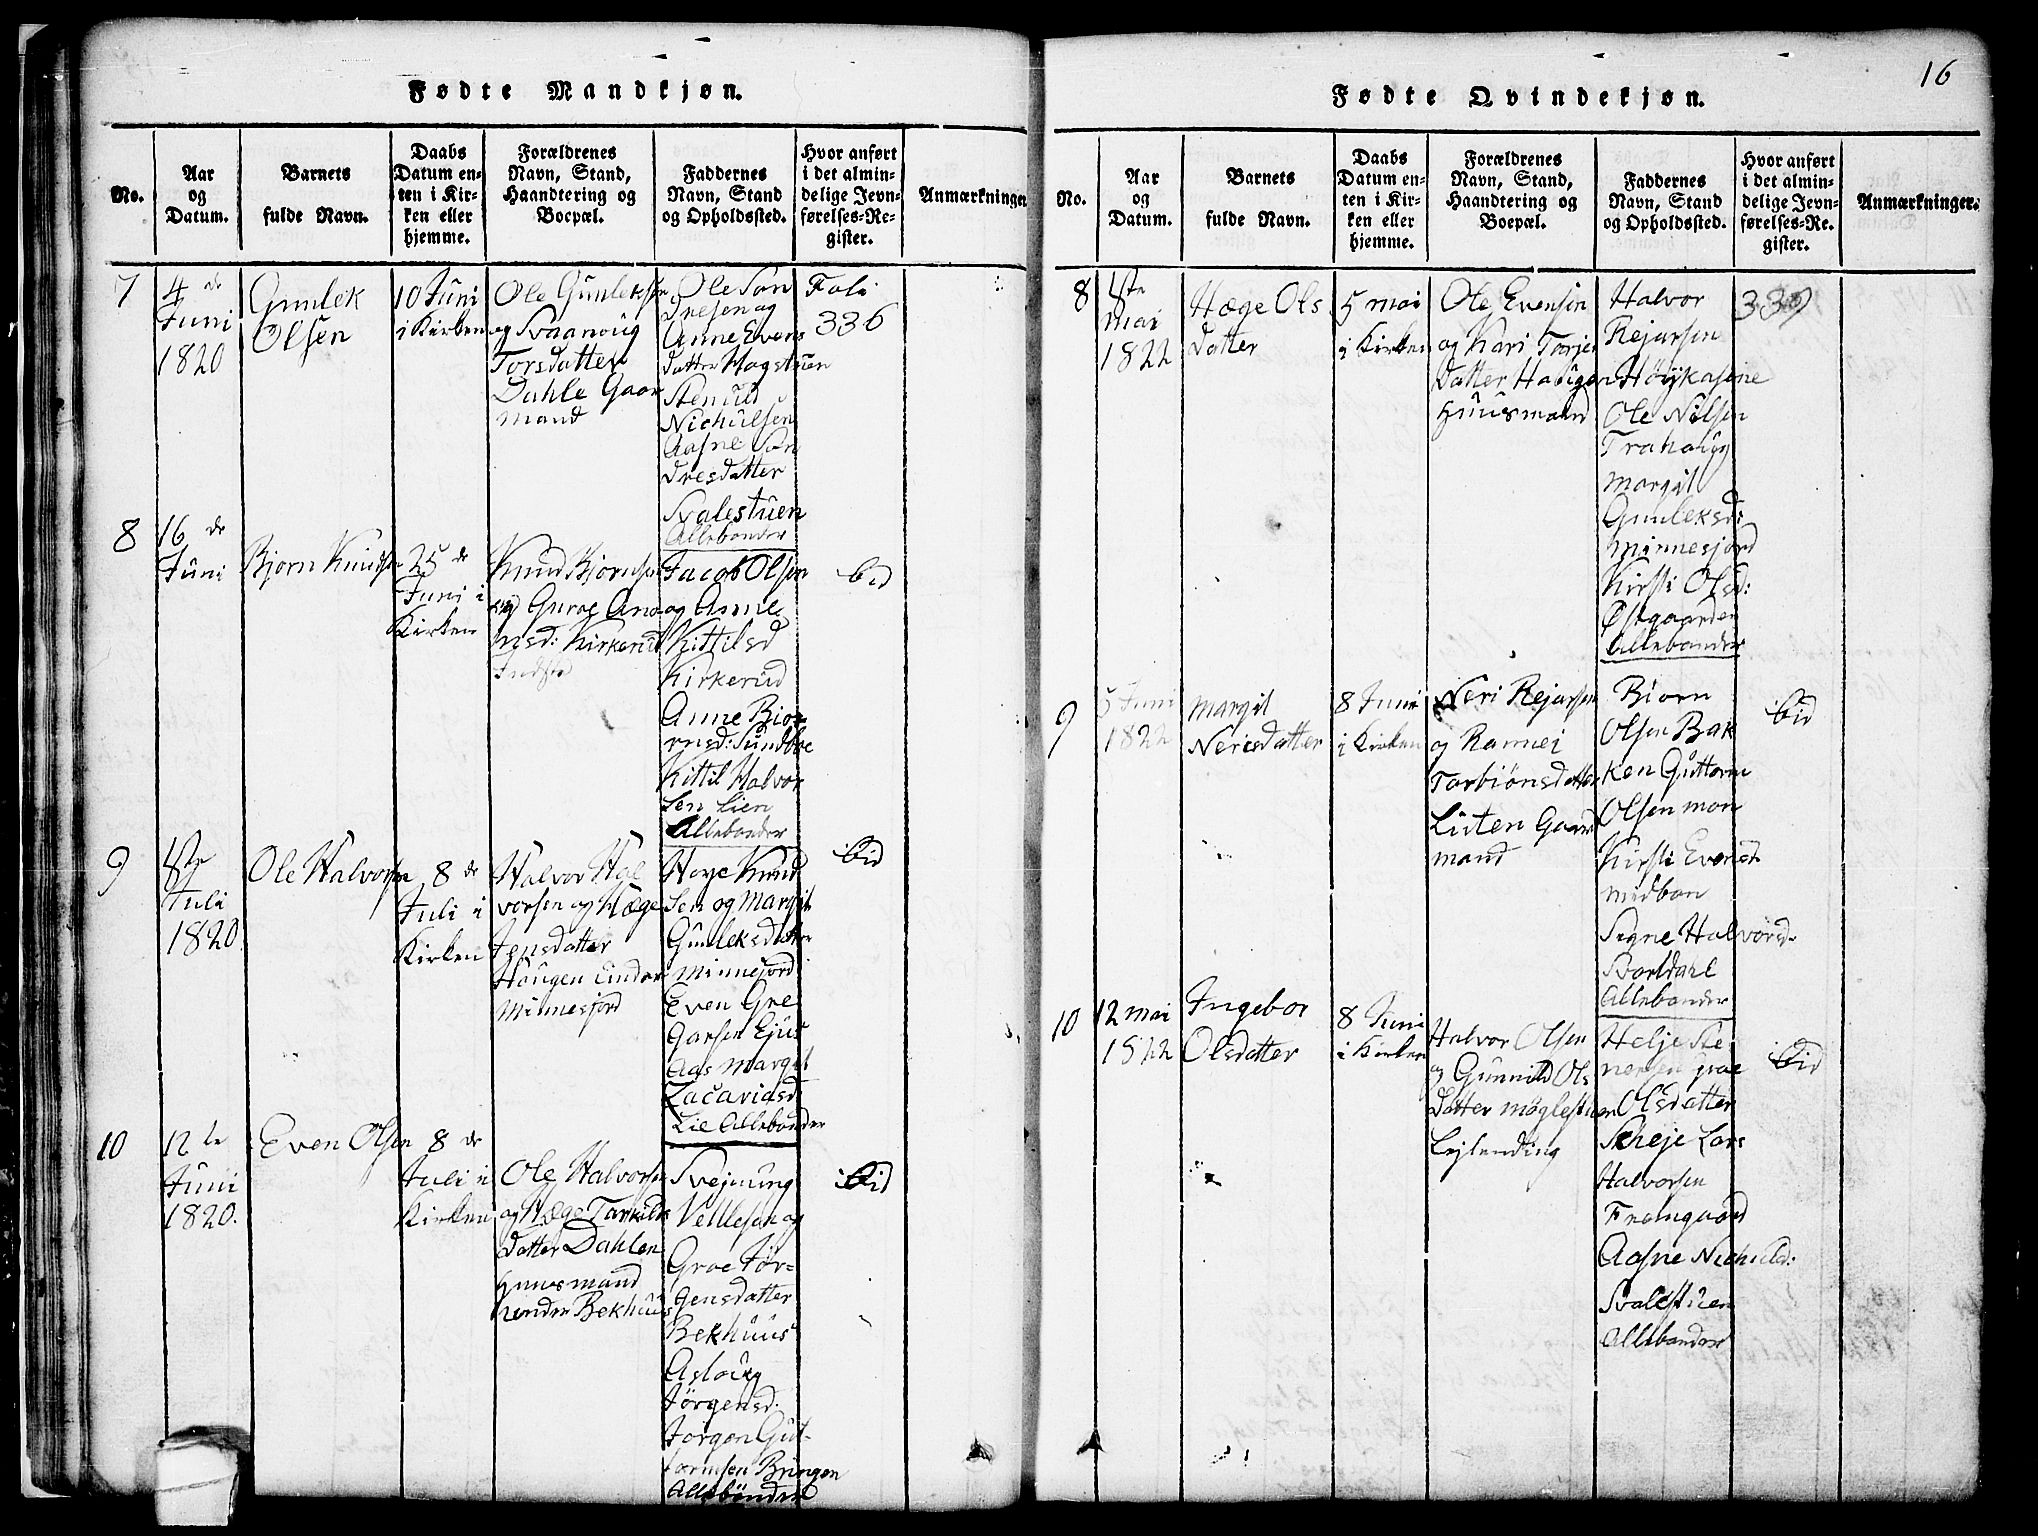 16
Fødte Mandkjøn.
No.
Aar
og
Datum.
Barnets
fulde Navn.
Daabs
Datum en-
ten i Kir-
ken eller
hjemme.
Forældrenes
Navn, Stand,
Haandtering og
Boepæl.
Faddernes
Navn, Stand
og Opholdssted.
Hvor anført
i det almin-
delige Jevn-
førelses-Re-
gister.
Anmærkninger
7
4 de
Juni
1820
Gunlek
Olsen
10 Juni
i Kirken
Ole Gunleksen
og Svaanoug
Torsdatter
Dahle Gaar
mand
Ole Son
dresen og
Anne Evens
datter Hagstuen
Stenud
Nichulsen
Aasne Son
dresdatter
Svalestuen
Allebonder
Fole
336
8
16 de
Juni
Bjorn Knudsen
25 de
Juni i
Kirken
Knud Bjornsen
og Guroe Ano
nsd: Kirkerud
Jacob Olsen
og Anne
Kittilsd
Kirkerud
Anne Bior
rnsd: Sundboe
Kittil Halvor
sen Lien
Allebonder
ibid
9
1ste
Juli
1820
Ole Halvorsen
8 de
Juli i
Kirken
Halvor Hal
vorsen og Hæge
Jensdatter
Haugen under
Minnesjord
Hoye Knud
sen og Margit
Gunleksdatter
Minnesjord
Even Gre
garsen Ejus
Aas Margit
Zacariasd
Lie Allebonder
ibid
10
12 te
Juni
1820.
Even Olsen
8 de
Juli i
Kirken
Ole Halvorsen
og Hæge Tarkilds
datter Dahlen
Huusmand
under Bekhuus
Svejnung
Vetlesen og
Groe Jør-
gensdatter
Bekhuus
Asloug
Jørgensd.
Jorgen Gut-
tormsen Bringen
Allebönder
Fødte Qvindekjøn.
No.
Aar
og
Datum.
Barnets
fulde Navn.
Daabs
Datum en-
ten i Kir-
ken eller
hjemme.
Forældrenes
Navn, Stand,
Haandtering og
Boepæl.
Faddernes
Navn, Stand
og Opholdssted.
Hvor anført
i det almin-
delige Jevn-
førelses-Re-
gister.
Anmærkninger.
8
1ste
mai
1822
Hæge Ols
datter
5 mai
i Kirken
Ole Evensen
og Kari Tarje
datter Haugen
Huusmand
Halvor
Rejarsen
Høykasene
Ole Nilsen
Trahoug
Margit
Gunleksd:
Minnesjord
Kirsti Olsd:
Østgaarden
Allebonder
339
9
5 Juni
1822
Margit
Nerisdatter
8 Juni
i Kirken
Neri Rejarsen
og Ramnei
Tarbiönsdatter
Listen Gaard
mand
Biorn
Olsen Bak
ken Guttorm
Olsen mon
Kirsti Evensd.
midbøn
Signe Halvorsd.
Svartdahl
Allebonder
ibid
10
12 mai
1822
Ingebor
Olsdatter
8 Juni
i Kirken
Halvor Olsen
og Gunnild Ols
datter Møglestuen
Lejlending
Helje Ste
nersen groe
Olsdatter
Skeje Lars
Halvorsen
Framgaard
Aasne Nichuld:
Svalestuen
Allebonder
ibid